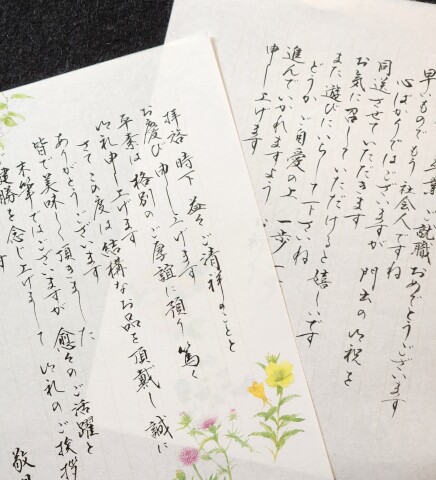 卒業 ご就職 おめでとうございます
早いものでもう 社会人ですね
心ばかりではございますが 門出の御祝を
同送させていただきます
お気に召していただけると嬉しいです
また遊びにいらして下さいね
どうか ご自愛の上 一歩一
進んでいかれますよう
申し上げます
拝啓 時下 益々ご清祥のことと
お慶び申し上げます
平素は格別のご厚誼に預り 篤く
御礼申し上げます
さてこの度は結構なお品を頂戴し誠に
ありがとうございます
皆で美味しく頂きました
末筆ではございますが 愈々のご活躍と
健勝を念じ上げまして 御礼のご挨拶
ます
敬具